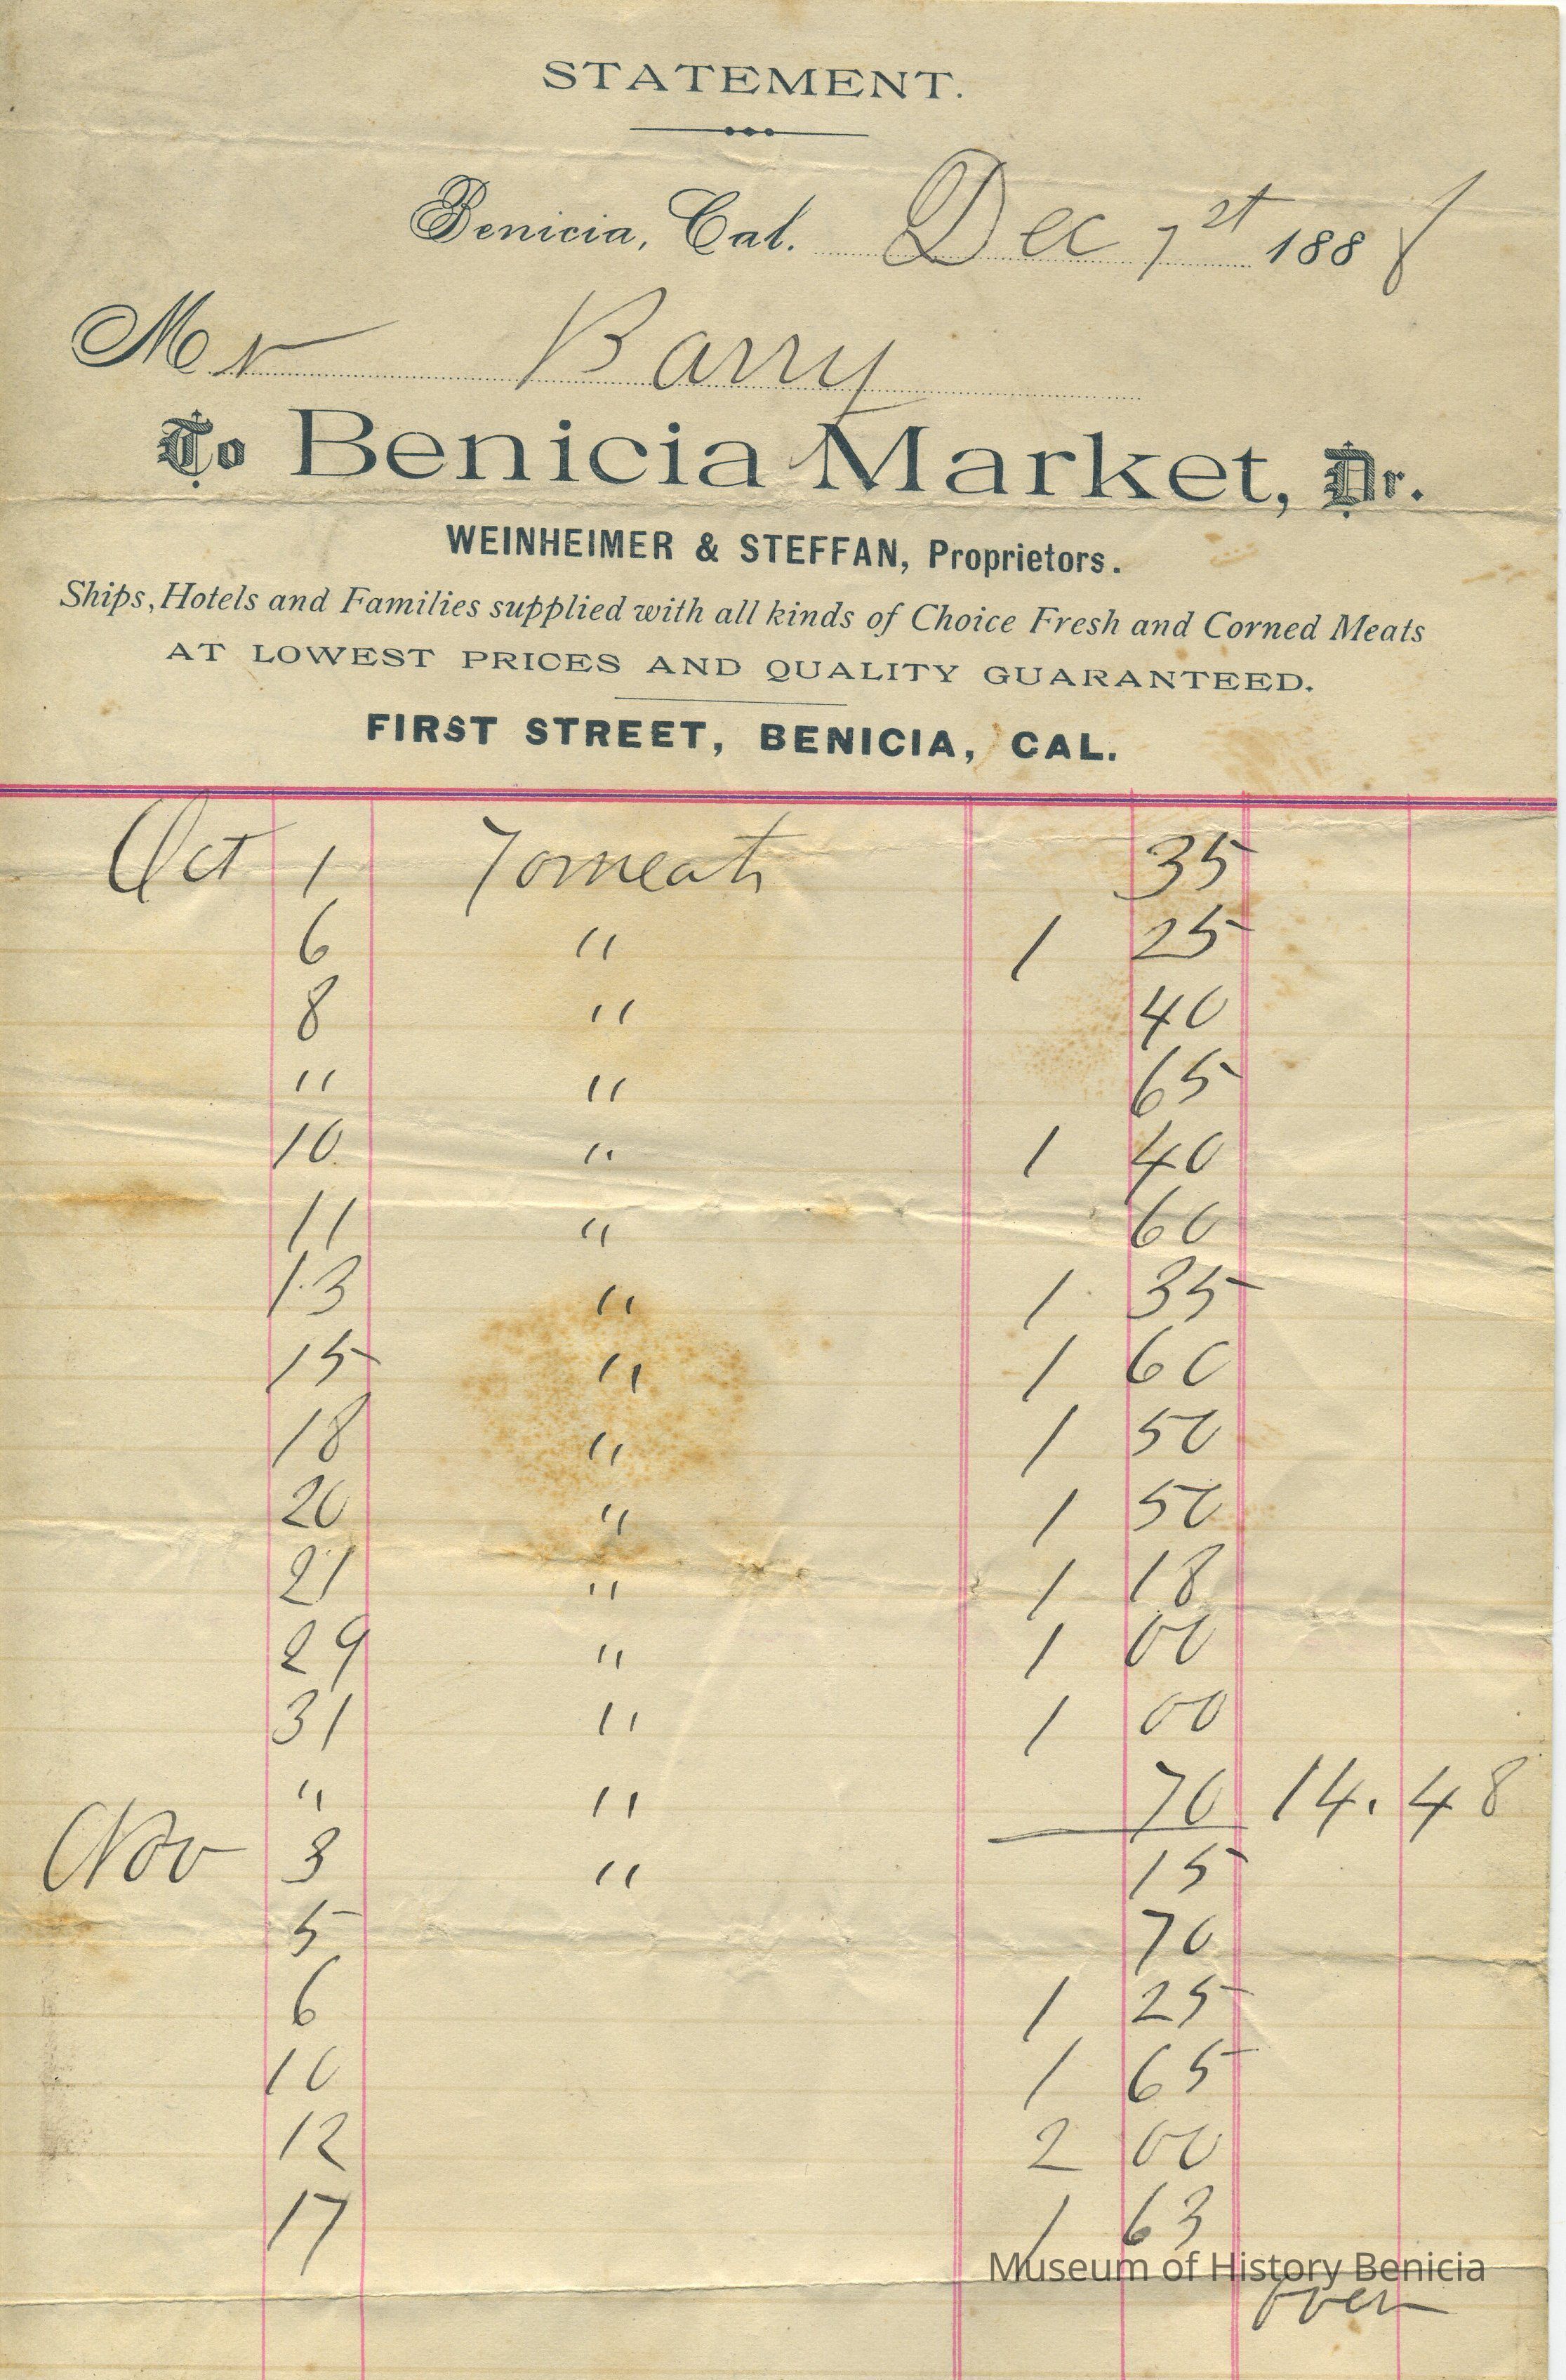 STATEMENT.
Benicia, Cal. Dec 1st 1888
Mr Barry
To Benicia Market, Dr.
WEINHEIMER & STEFFAN, Proprietors.
Ships, Hotels and Families supplied with all kinds of Choice Fresh and Corned Meats
AT LOWEST PRICES AND QUALITY GUARANTEED.
FIRST STREET, BENICIA, CAL.
Oct 1 To meat 35
6 " 1 25
8 " 40
" " 65
10 " 1 40
11 " 60
13 " 1 35
15 " 1 60
18 " 1 50
20 " 1 50
21 " 1 18
29 " 1 00
31 " 1 00
" " 70 14.48
Nov 3 " 15
5 70
6 1 25
10 1 65
12 2 00
17 1 63
Museum of History Benicia
over